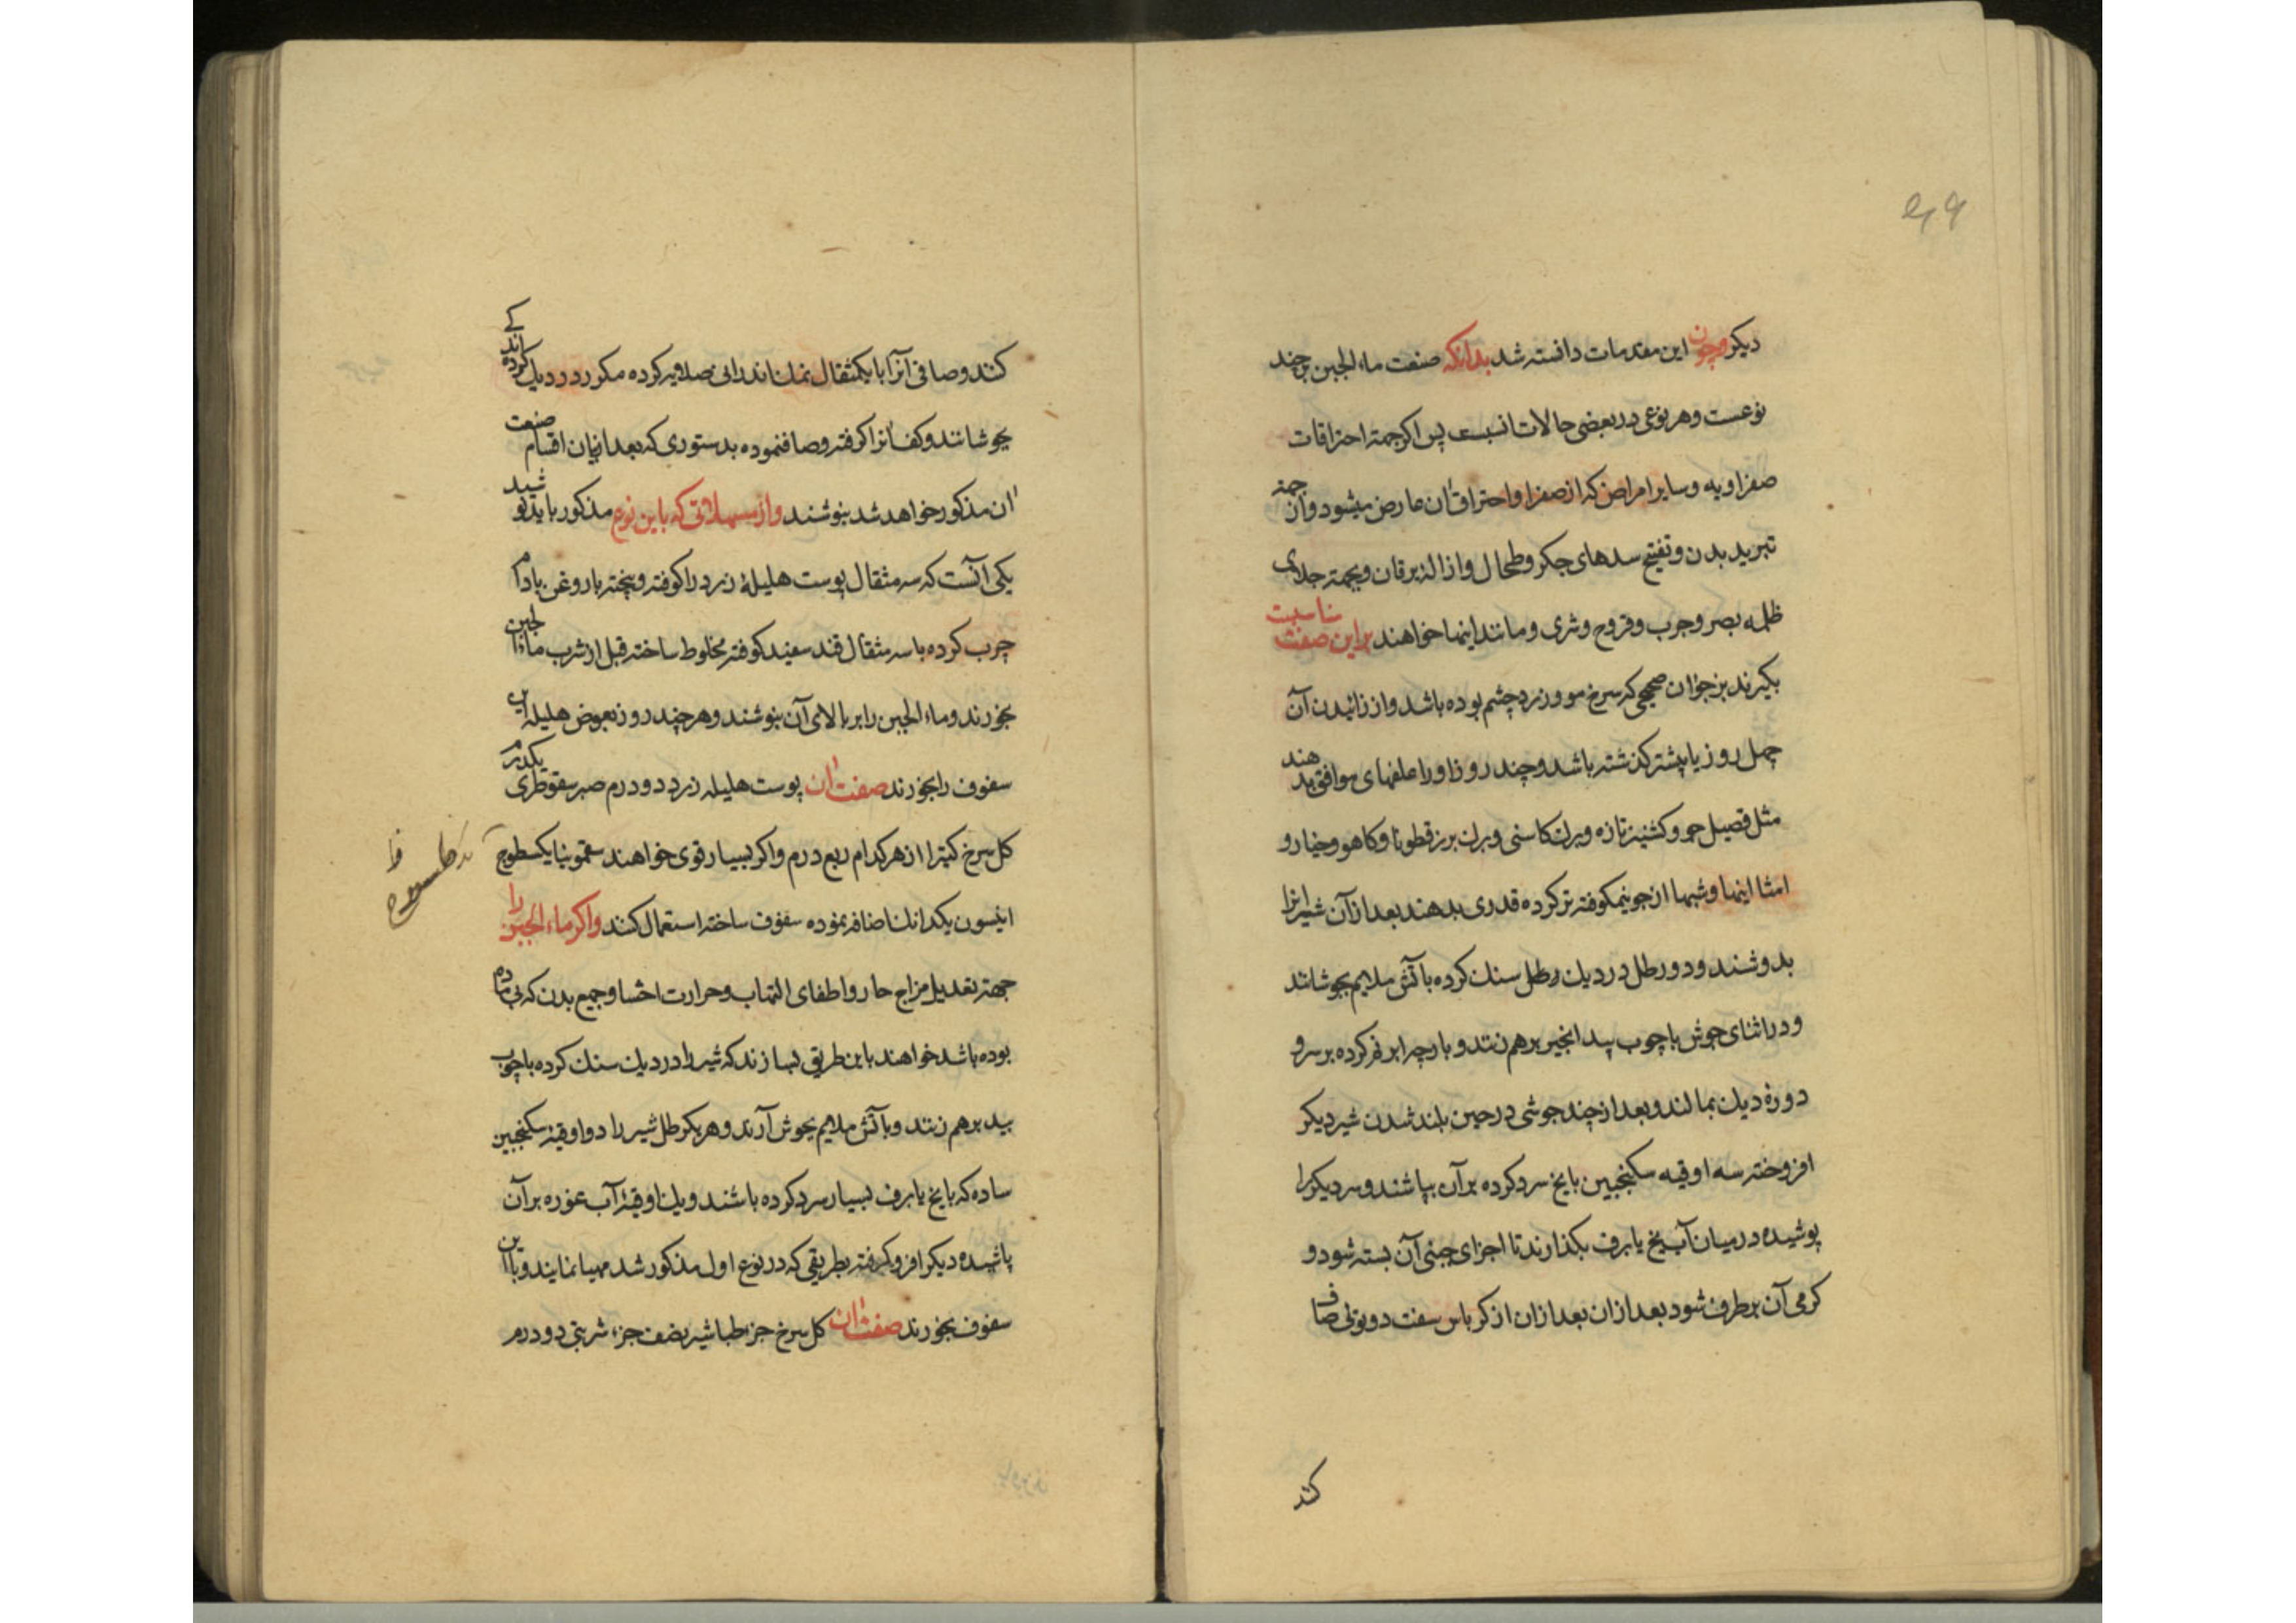 دیکر وچون این مقدمات دانسته شد بدانکه صنعت ماء الجبن بر چند
نوعست وهر نوعی در بعضی حالات انسبست پس اکر جهتهٔ احتراقات
صفراویه وسایر امراض که از صفرا واحتراق آن عارض میشود وآن جهتهٔ
تبرید بدن وتفتیح سدهای جکر وطحال وازالهٔ یرقان وبجهتهٔ جلای
ظلمه بصر وجرب وقروح وشری ومانند اینها خواهند براین صفت مناسبست
بکیرند بز جوان صحیحی که سرخ مو وزرد چشم بوده باشد واز زائیدن آن
چهل روز یا پیشتر کذشته باشد وچند روز او را علفهای موافق بدهند
مثل قصیل جو وکشنیز تازه وبرک کاسنی وبرک بزرقطونا وکاهو وخیار و
امثا اینها وشبها از جو نیمکوفته تر کرده قدری بدهند بعد از آن شیر انرا
بدوشند ودو رطل در دیک سنک کرده با آتش ملایم بجوشانند
ودر اثنای جوش با چوب بید انجیر برهم زنند و پارچهٔ بر سر و
دورهٔ دیک بمالند وبعد از چند جوشی در حین بلند شدن شیر دیکر
افروخته سه اوقیه سکنجبین با یخ سرد کرده بر آن بپاشند وسر دیکرا
پوشیده در میان آب یخ یا برف بکذارند تا اجزای جبنی آن بسته شود و
کرمی آن برطرف شود بعد ازان بعد ازان از کرباس سفت دوتوئی صاف
کند
کنند وصافی آنرا با یکمثقال نمک اندرانی صلایه کرده مکرر در دیک کرده اند کے
بجوشانند وکف آنرا کرفته وصاف نموده بدستوری که بعد از بیان اقسام صنعت
آن مذکور خواهد شد بنوشند واز مسهلاتی که باین نوع مذکور باید نوشید
یکی آنست که سه مثقال پوست هلیلهٔ زرد را کوفته وپخته با روغن بادام
چرب کرده با سه مثقال قند سفید کوفته مخلوط ساخته قبل از شرب ماءالجبن
بخورند وماء الجبن را بر بالای آن بنوشند وهر چند روز بعوض هلیله این
سفوف را بخورند صفت آن پوست هلیله زرد دو درم صبر سقوطری یکدرم
کل سرخ کتیرا از هر کدام ربع درم واکر بسیار قوی خواهند سقمونیا یکسطوج
انیسون یکدانک اضافه نموده سفوف ساخته استعمال کنند واکر ماء الجبن را
جهته تعدیل مزاج حار واطفای التهاب وحرارت احشا وجمیع بدن که بی ماده
بوده باشد خواهند باین طریق بسازند که شیر را در دیک سنک کرده با چوب
بید برهم زنند وبا آتش ملایم بجوش آرند وهر یکرطل شیر را دو اوقیهٔ سکنجبین
ساده که با یخ یا برف بسیار سرد کرده باشند ویک اوقیهٔ آب غوره بر آن
پاشیده دیکر افرو کرفته بطریقی که در نوع اول مذکور شد مهیا نمایند وبا این
سفوف بخورند صفت آن کل سرخ جزء طباشیر نصف جزء شربتی دو درم